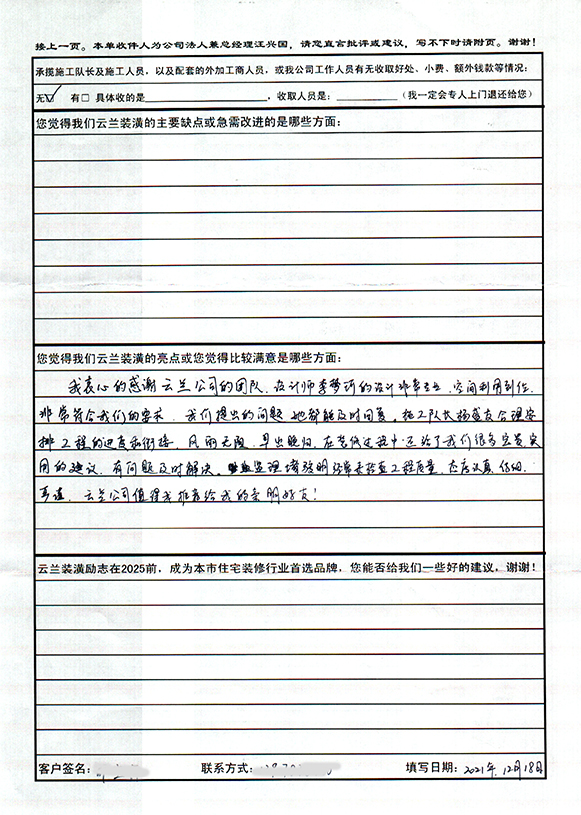 接上一页。本单收件人为公司法人兼总经理汪兴国，请您直言批评或建议，写不下时请附页。谢谢！
承揽施工队长及施工人员，以及配套的外加工商人员，或我公司工作人员有无收取好处、小费、额外钱款等情况：
无☑ 有□ 具体收的是____________，收取人员是：____________（我一定会专人上门退还给您）
您觉得我们云兰装潢的主要缺点或急需改进的是哪些方面：
您觉得我们云兰装潢的亮点或您觉得比较满意是哪些方面：
我衷心的感谢云兰公司的团队，设计师李梦河的设计非常专业，空间利用到位，
非常符合我们的要求，我们提出的问题她都能及时回复。施工队长杨爱友合理安
排工程的进度和衔接，风雨无阻，早出晚归，在装修过程中还给了我们很多实实
用的建议，有问题及时解决。监理诸弥明经常来检查工程质量，态度认真、仔细。
云兰公司值得我推荐给我的亲朋好友！
云兰装潢励志在2025前，成为本市住宅装修行业首选品牌，您能否给我们一些好的建议，谢谢！
客户签名： 联系方式： 填写日期：2021年12月18日